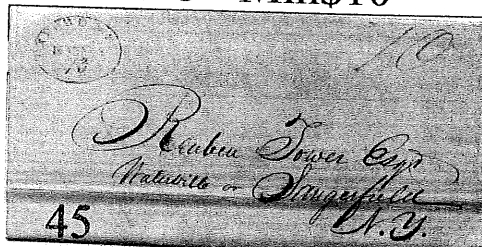 Min$10
10
Reuben Tower Esqr
Waterville or Sangerfield
N. Y.
45